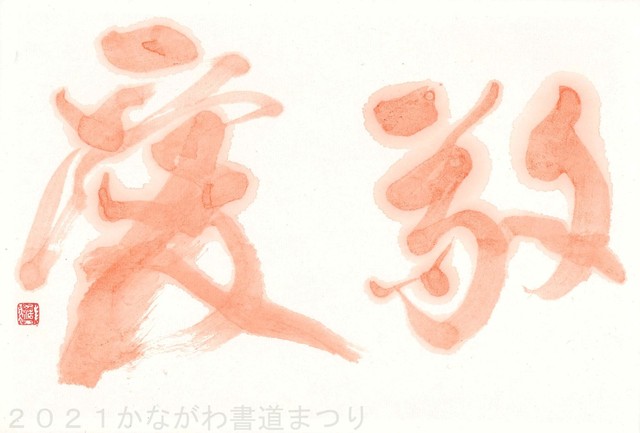 敬愛
２０２１かながわ書道まつり